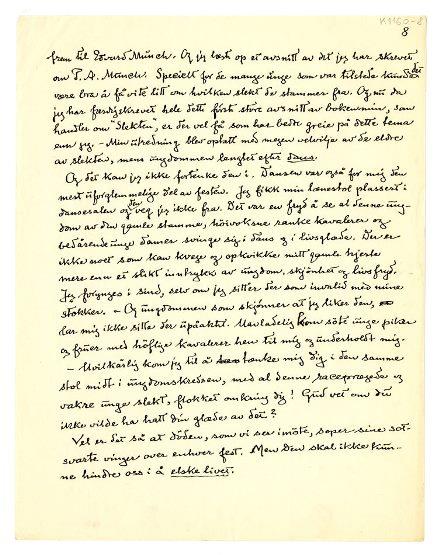 K1160-8
8
frem til Edvard Munch. Og jeg læst op et avsnitt av det jeg har skrevet
om P. A. Munch. Specielt for de mange unge som var tilstede kunde det
være bra å få vite litt om hvilken slekt de stammer fra. Og nu da
jeg har færdigskrevet hele dette første større avsnitt av boken min, som
handler om Slekten, er det vel få som har bedre greie på dette tema
enn jeg. - Min utredning blev optatt med megen velvilje av de eldre
av slekten, mens ungdommen lengtet efter dans.
Og det kan jeg ikke fortenke den i. Dansen var også for mig den
mest uforglemmelige del av festen. Jeg fikk min lænestol plassert i
dansesalen og der veg jeg ikke fra. Det var en fryd å se al denne ung-
dom av den gamle stamme, höivoksne ranke kavalerer og
bedårende unge damer svinge sig i dans og i livsglæde. Der er
ikke noet som kan kvege og opkvikke mitt gamle hjerte
mere enn et slikt inntrykk av ungdom, skjönhet og livsfryd.
Jeg forynges i sind, selv om jeg sitter der som invalid med mine
stokker. - Og ungdommen som skjönner at jeg liker den,
lar mig ikke sitte der upåaktet. Uavladelig kom söte unge piker
og fruer med höflige kavalerer hen til mig og underholdt mig.
- Uvilkårlig kom jeg til å tænke mig dig i den samme
stol midt i ungdomskredsen, med al denne racepregede og
vakre unge slekt, flokket omkring dig! Gud vet om du
ikke vilde ha hatt din glæde av det?
Vel er det så at döden, som vi ser imöte, soper sine sot-
svarte vinger over enhver fest. Men Den skal ikke kun-
ne hindre oss i å elske livet.